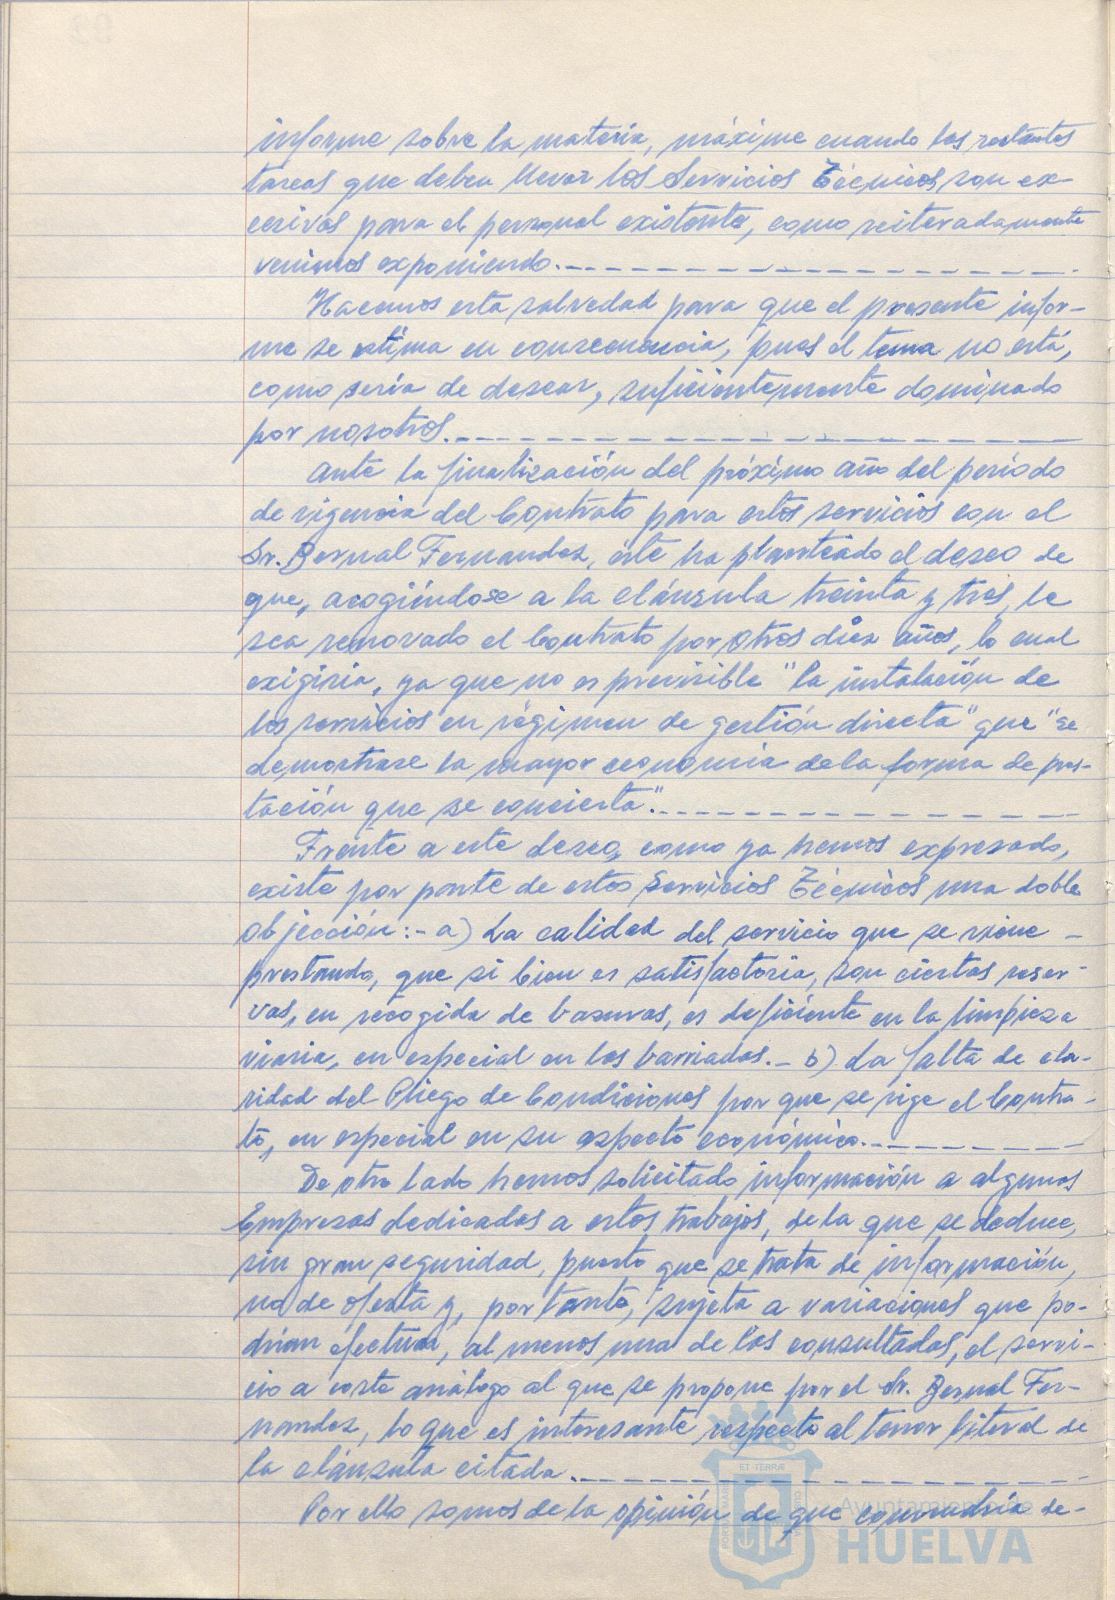 informe sobre la materia, máxime cuando las restantes
tareas que deben llevar los Servicios Técnicos, son ex-
cesivas para el personal existente, como reiteradamente
venimos exponiendo.
Hacemos esta salvedad para que el presente infor-
me se estima en consecuencia, pues el tema no está,
como sería de desear, suficientemente dominado
por nosotros.
Ante la finalización del próximo año del período
de vigencia del Contrato para estos servicios con el
Sr. Bernal Fernandez, éste ha planteado el deseo de
que, acogiéndose a la cláusula treinta y tres, le
sea renovado el Contrato por otros diez años, lo cual
exigiria, ya que no es previsible "la instalación de
los servicios en régimen de gestión directa" que "se
demostrase la mayor economía de la forma de pres-
tación que se concierta".
Frente a este deseo, como ya hemos expresado,
existe por parte de estos Servicios Técnicos una doble
objección:- a) La calidad del servicio que se viene -
prestando, que si bien es satisfactoria, son ciertas reser-
vas, en recogida de basuras, es deficiente en la limpieza
viaria, en especial en las barriadas.- b) La falta de cla-
ridad del Pliego de Condiciones por que se rige el Contra-
to, en especial en su aspecto económico.
De otro lado hemos solicitado información a algunas
Empresas dedicadas a estos trabajos, de la que se deduce,
sin gran seguridad, puesto que se trata de información,
no de oferta y, por tanto, sujeta a variaciones que po-
drían efectuar, al menos una de las consultadas, el servi-
cio a coste análogo al que se propone por el Sr. Bernal Fer-
nandez, lo que es interesante respecto al tenor literal de
la cláusula citada.
Por ello somos de la opinión de que convendría de-
Ayuntamiento de
HUELVA